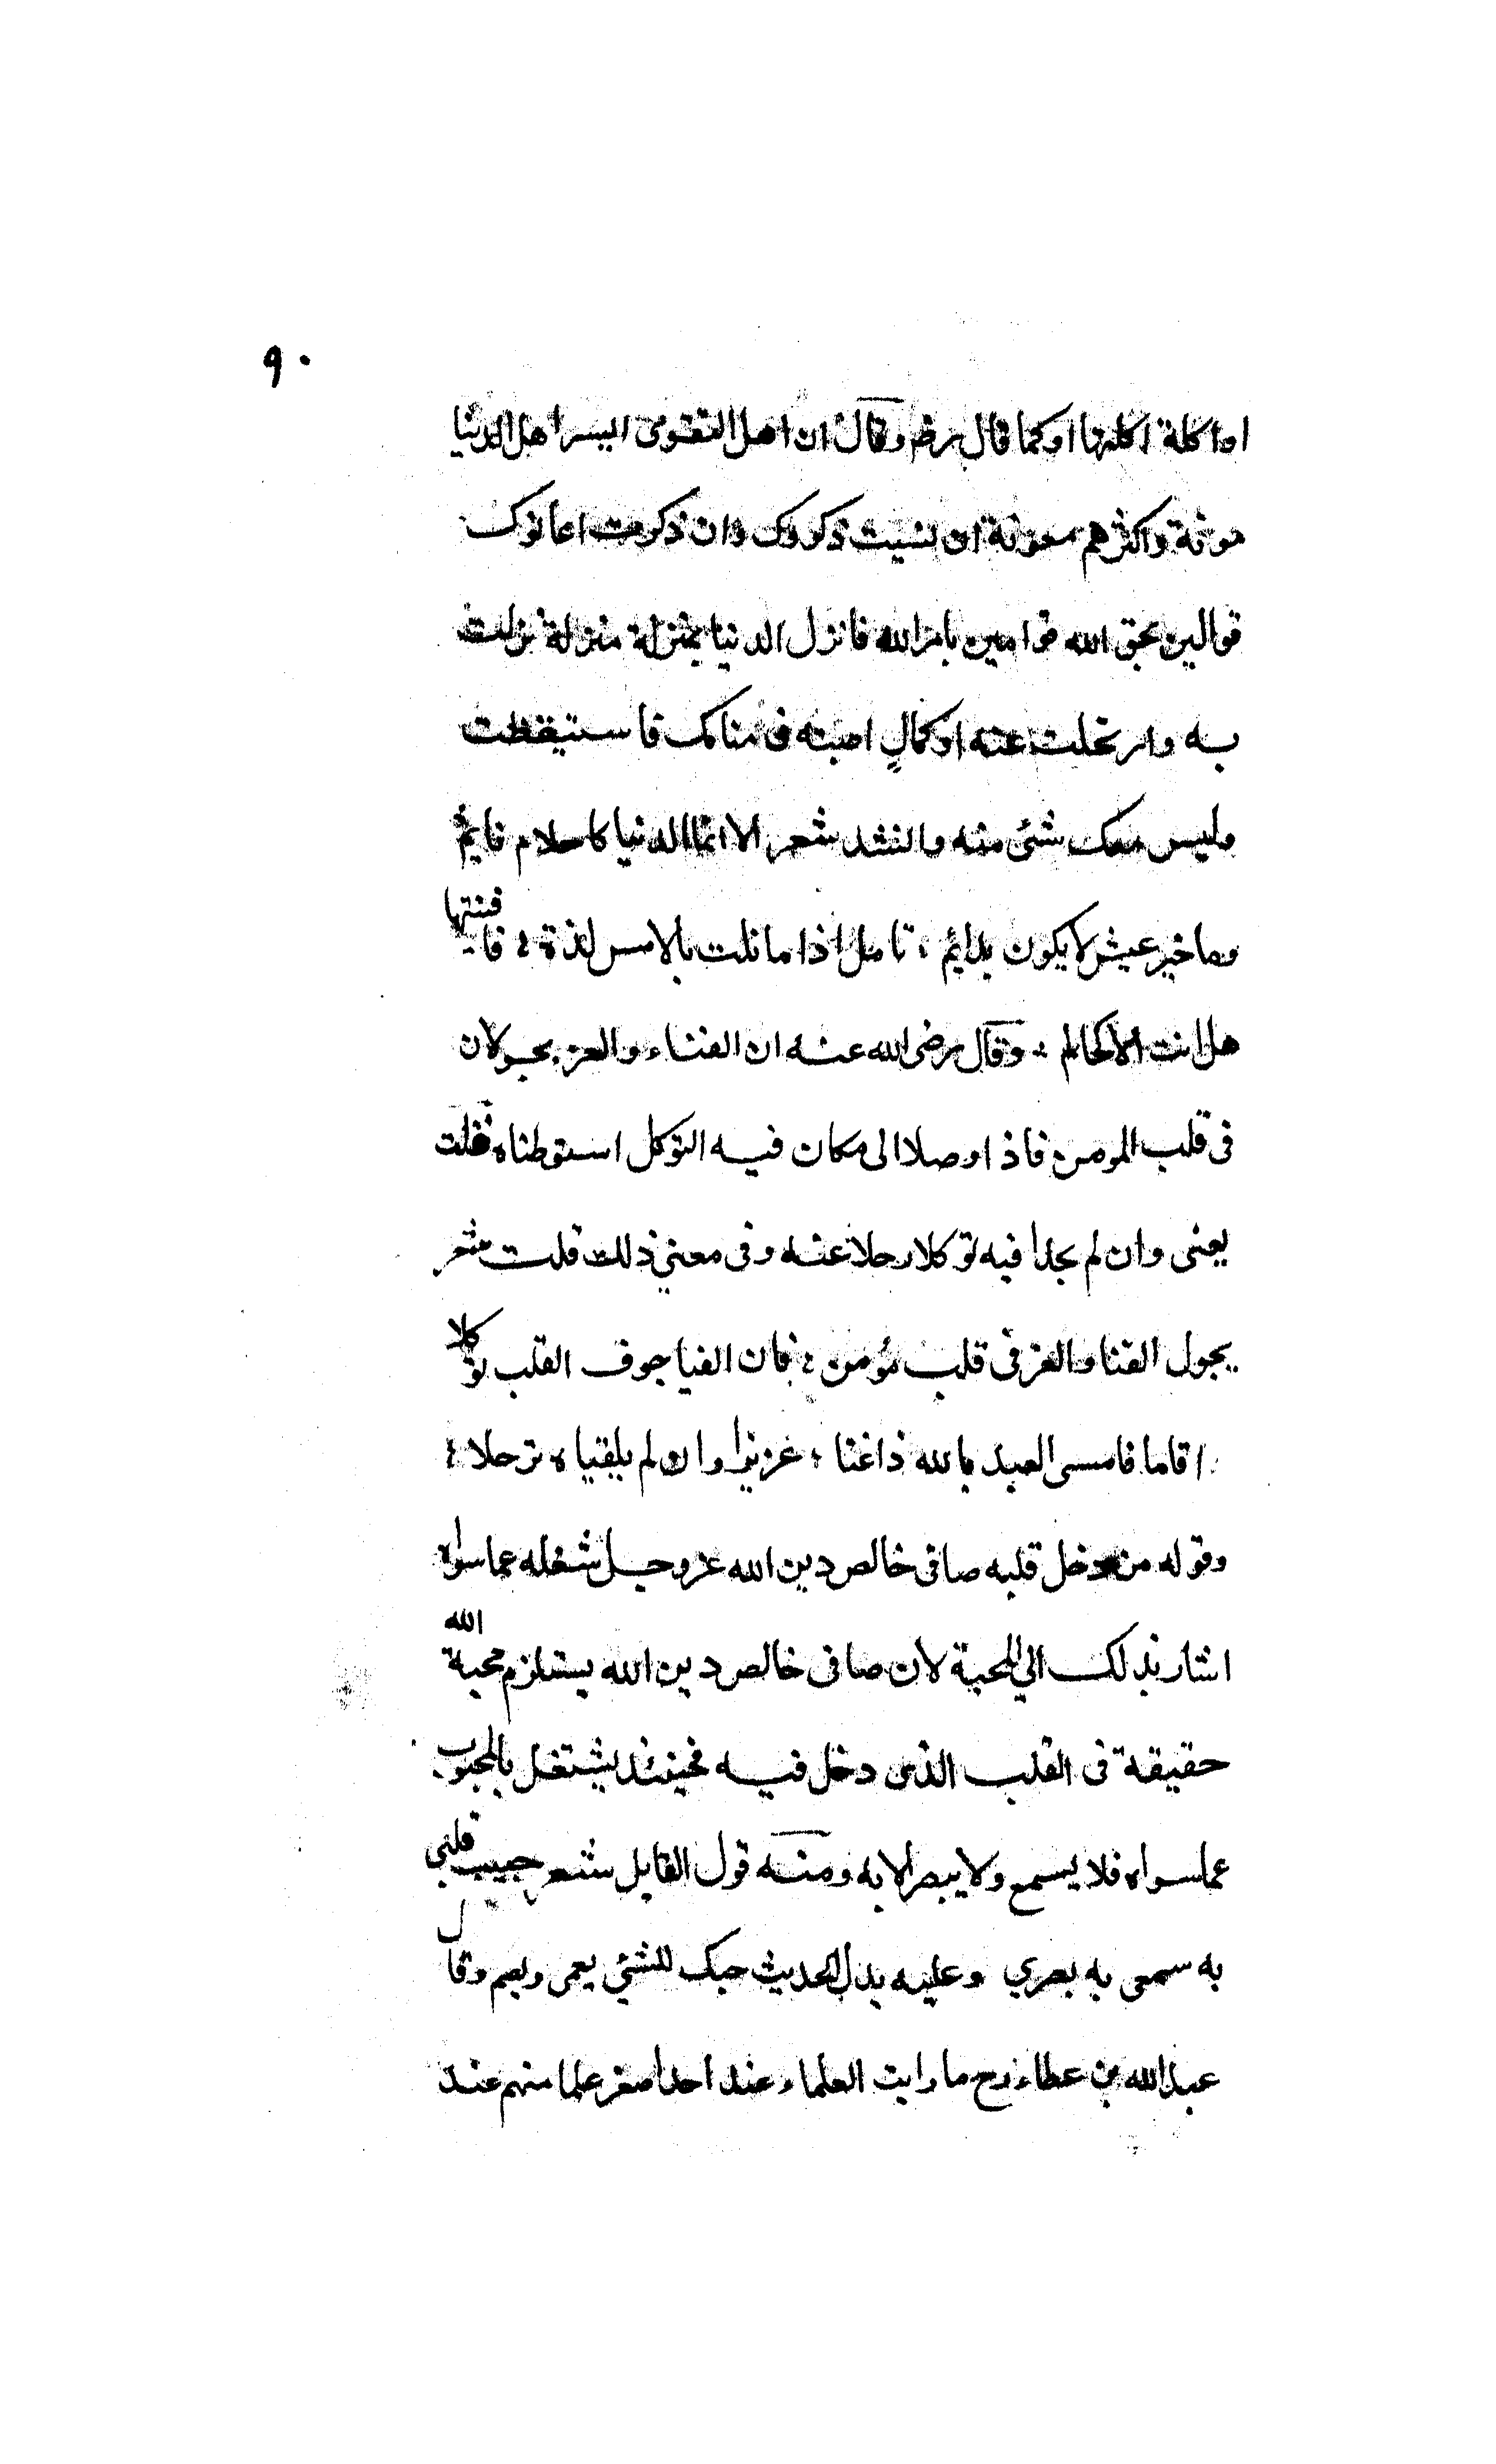 ٩٠
او اكلة اكلتها او كما قال رضه وقال ان اهل التقوى ايسر اهل الدنيا
مونة واكثرهم معونة ان نسيت ذكروك وان ذكرت اعانوك
قوالين بحق الله قوامين بامر الله فانزل الدنيا بمنزلة منزلة نزلت
به وارتحلت عنه او كمال اصبته فى منامك فاستيقظت
وليس معك شئ منه وانشد شعر الا انما الدنيا كاحلام نايم
وما خير عيش لا يكون بدايم ، تامل اذا ما نلت بالامس لذة ، فافنيتها
هل انت الا كحالم ، وقال رضى الله عنه ان الغناء والعز يجولان
فى قلب المومن فاذا وصلا الى مكان فيه التوكل استوطناه فقلت
يعنى وان لم يجدا فيه توكلا رحلا عنه وفى معنى ذلك قلت شعر
يجول الغنا والعز فى قلب مؤمن ، فان الفيا جوف القلب توكلا
اقاما فامسى العبد بالله ذا غنا ، عزيزا وان لم يلقياه ترحلا ،
وقوله من دخل قلبه صافى خالص دين الله عز وجل شغله عما سواه
اشار بذلك الى المحبة لان صافى خالص دين الله يستلزم محبة الله
حقيقة فى القلب الذى دخل فيه فحينئذ يشتغل بالمحبوب
عما سواه فلا يسمع ولا يبصر الا به ومنه قول القايل شعر حبيب قلبي
به سمعى به بصري وعليه يدل الحديث حبك للشئ يعمى ويصم وقال
عبد الله بن عطاء رح ما رايت العلماء عند احد اصغر علما منهم عند